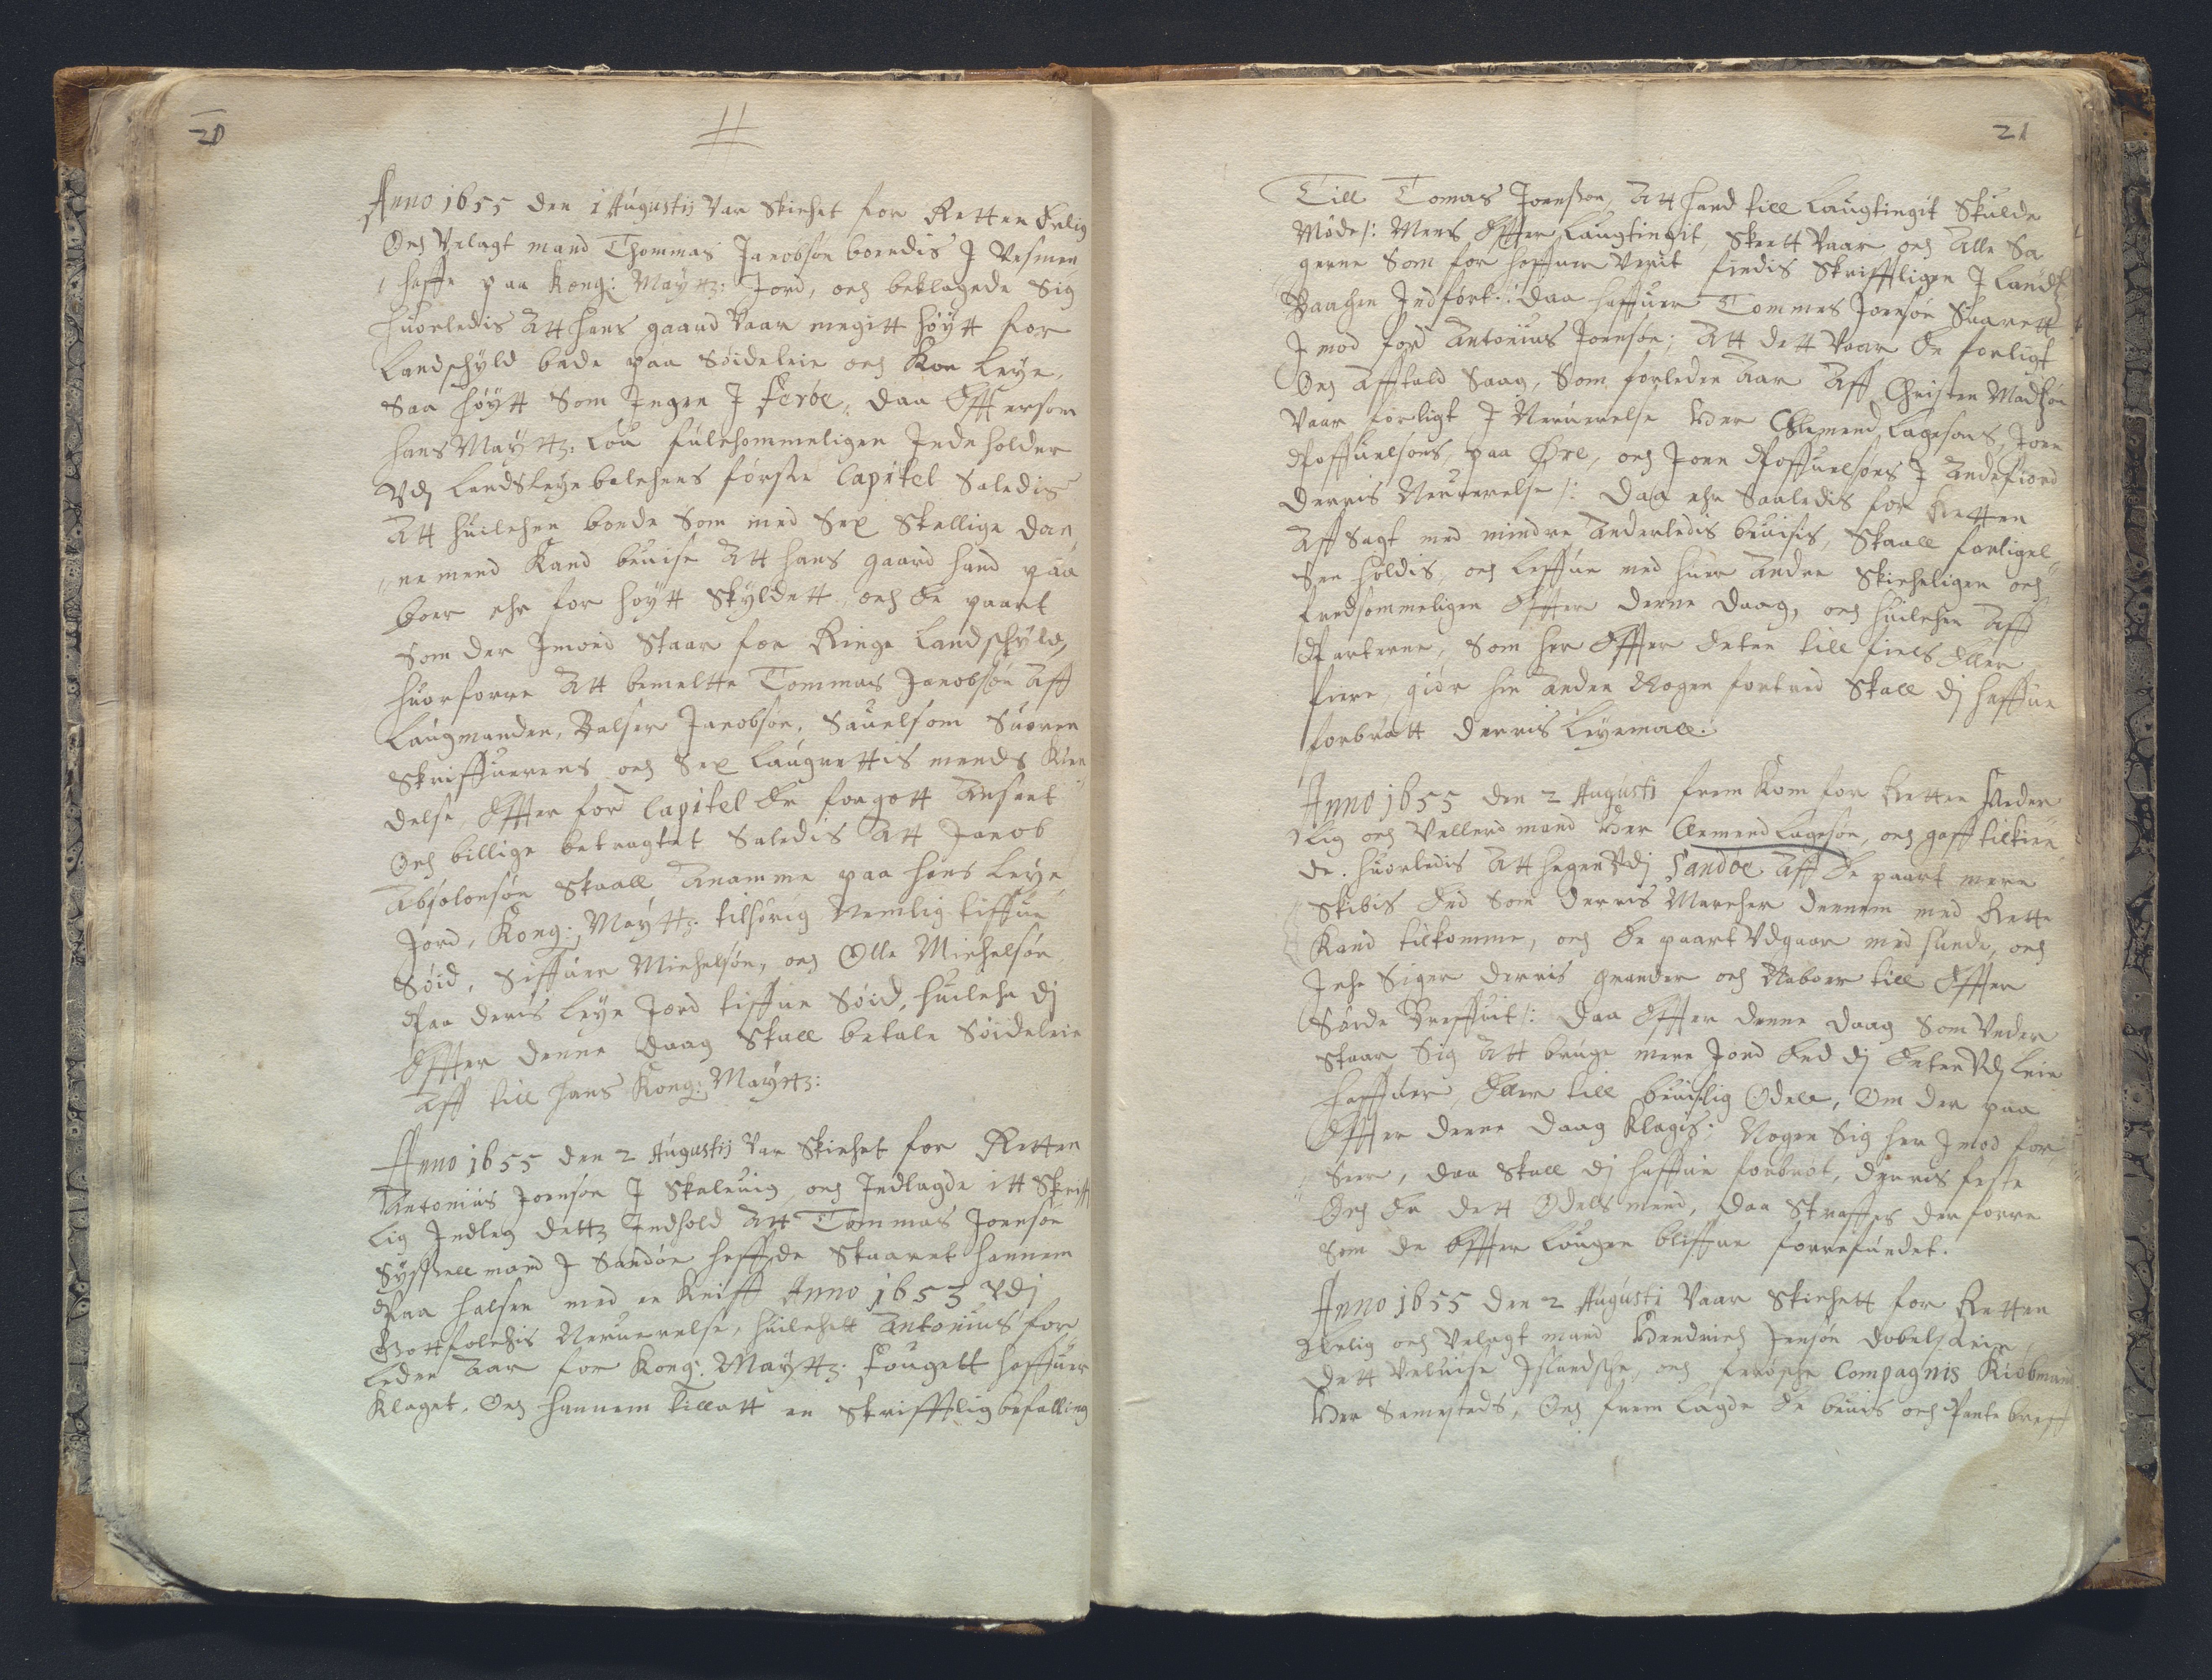 20
Anno 1655 den 1 Augustij Var Skichet for Retten Erlig
Och Velagt mand Thommas Jacobsøn boendis J Vesmen
haffe paa Kong: Maytz: Jord, och beklagede Sig
Huorledis Att hans gaard Vaar megitt høytt for
Landschyld bode paa Søideleie och Koe Leye,
Saa høytt Som Jngen J Ferøe, daa Effttersom
hans Maytz: Lou fulchommeligen Jnde holder
Vdj Landsleye balchens første Capitel Saledis
Att huilchen bonde Som med Sex Skellige dan,
ne mend Kand beuise Att hans gaard hand paa
boer ehr for høytt Skyldett, och En paart
Som der Jmoed Staar for Ringe Landschyld,
huorforre Att bemeltte Tommas Jacobsøn Aff
Laugmanden, Balser Jacobsøn, Sauelsom Suoren
Skriffuerens och Sex Laugrettis mends Kien
delse Effter ford Capitel Er forgott Anseet
Och billige betragtet Saledis Att Jacob
Absolonsøn Skaall Anamme paa hans Leye
Jord, Kong: Maytz: tilhørig Nemlig tiffue
Søid, Siffuer Michelsøn, och Olle Michelsøn
Paa deris Leye Jord tiffue Søid, huilche dj
Effter denne daag Skall betale Søideleie
Aff till hans Kong: Maytz:
Anno 1655 den 2 Augustij Var Skichet for Retten
Antonius Joensøn J Skaluig, och Jndlagde itt Skriff
lig Jndleg dettz Jndhold Att Tommas Joensøn
Sysselmand J Sandøe haffde Skaaret hannem
Paa halsen med en Kniff Anno 1653 Vdj
Gott folchis Neruerelse, huilchett Antonius for
leden Aar for Kong: Maytz: fougett haffuer
Klaget, Och hannem tillatt en Skrifftlig befalling
21
Till Tomas Joensson, Att hand till Laugtingit Skulde
Møde /: Mens Effter Laugtingit, Skett Vaar och Alle Sa
gerne Som for haffuer Verit findis Skrifftligen J Landtz
Baachen Jndført :/ daa haffuer Tommes Joensøn Suarett
J mod ford Antonius Joensøn; Att dett Vaar En forligt
Och Afftald Saag, Som forleden Aar Aff Christen Madtzøn
Vaar forligt J Neruerelse Her Clemend Lagesøns, Joen
Poffuelsøns, paa Øre, och Joen Poffuelsøns J Andefiord
derris Neruerelse /: daa ehr Saaledis for Retten
Aff Sagt med mindre Anderledis beuisis, Skaall forligel
Sen holdis, och Leffue med huer Andre Skicheligen och
fredsommeligen Effter denne daag, och huilchen Aff
Parterne, Som her Effter Enten till fiels Eller
fiere, giør hin Anden Nogen fortred Skall dj haffue
forbrøtt derris Leyemaal.
Anno 1655 den 2 Augusti frem Kom for Retten Heder
Lig och Vellerd mand Her Clemend Lagesøn, och gaff tilkien
de. huorledis Att hegen Vdj Sandøe Aff En paart mere
Skibis End Som derris Marcher dennem med Rette
Kand tilkomme, och En paart Vdgaar med hunde, och
Jche Siger derris grander och Naboer till Effter
Søide Breffuit /: daa Effter denne daag Som Under
Staar Sig Att bruge mere Jord End dj Enten Vdj Leie
haffuer, Eller till beuislig Odell, Om der paa
Effter denne daag Klagis; Nogen Sig her Jmod for
Seer, daa Skall dj haffue forbrøt, derris feste
Och Er dett Odels mend, daa Straffes der forre
Som de Effter Lougen bliffue forrefundet.
Anno 1655 den 2 Augusti Vaar Skichett for Retten
Erlig och Velagt mand Hendrich Jensøn dobelstein
dett Veluise Jslandsche, och Ferøsche Compagnis Kiøbmand
Her Samesteds, Och frem Lagde En beuis och Pante breff